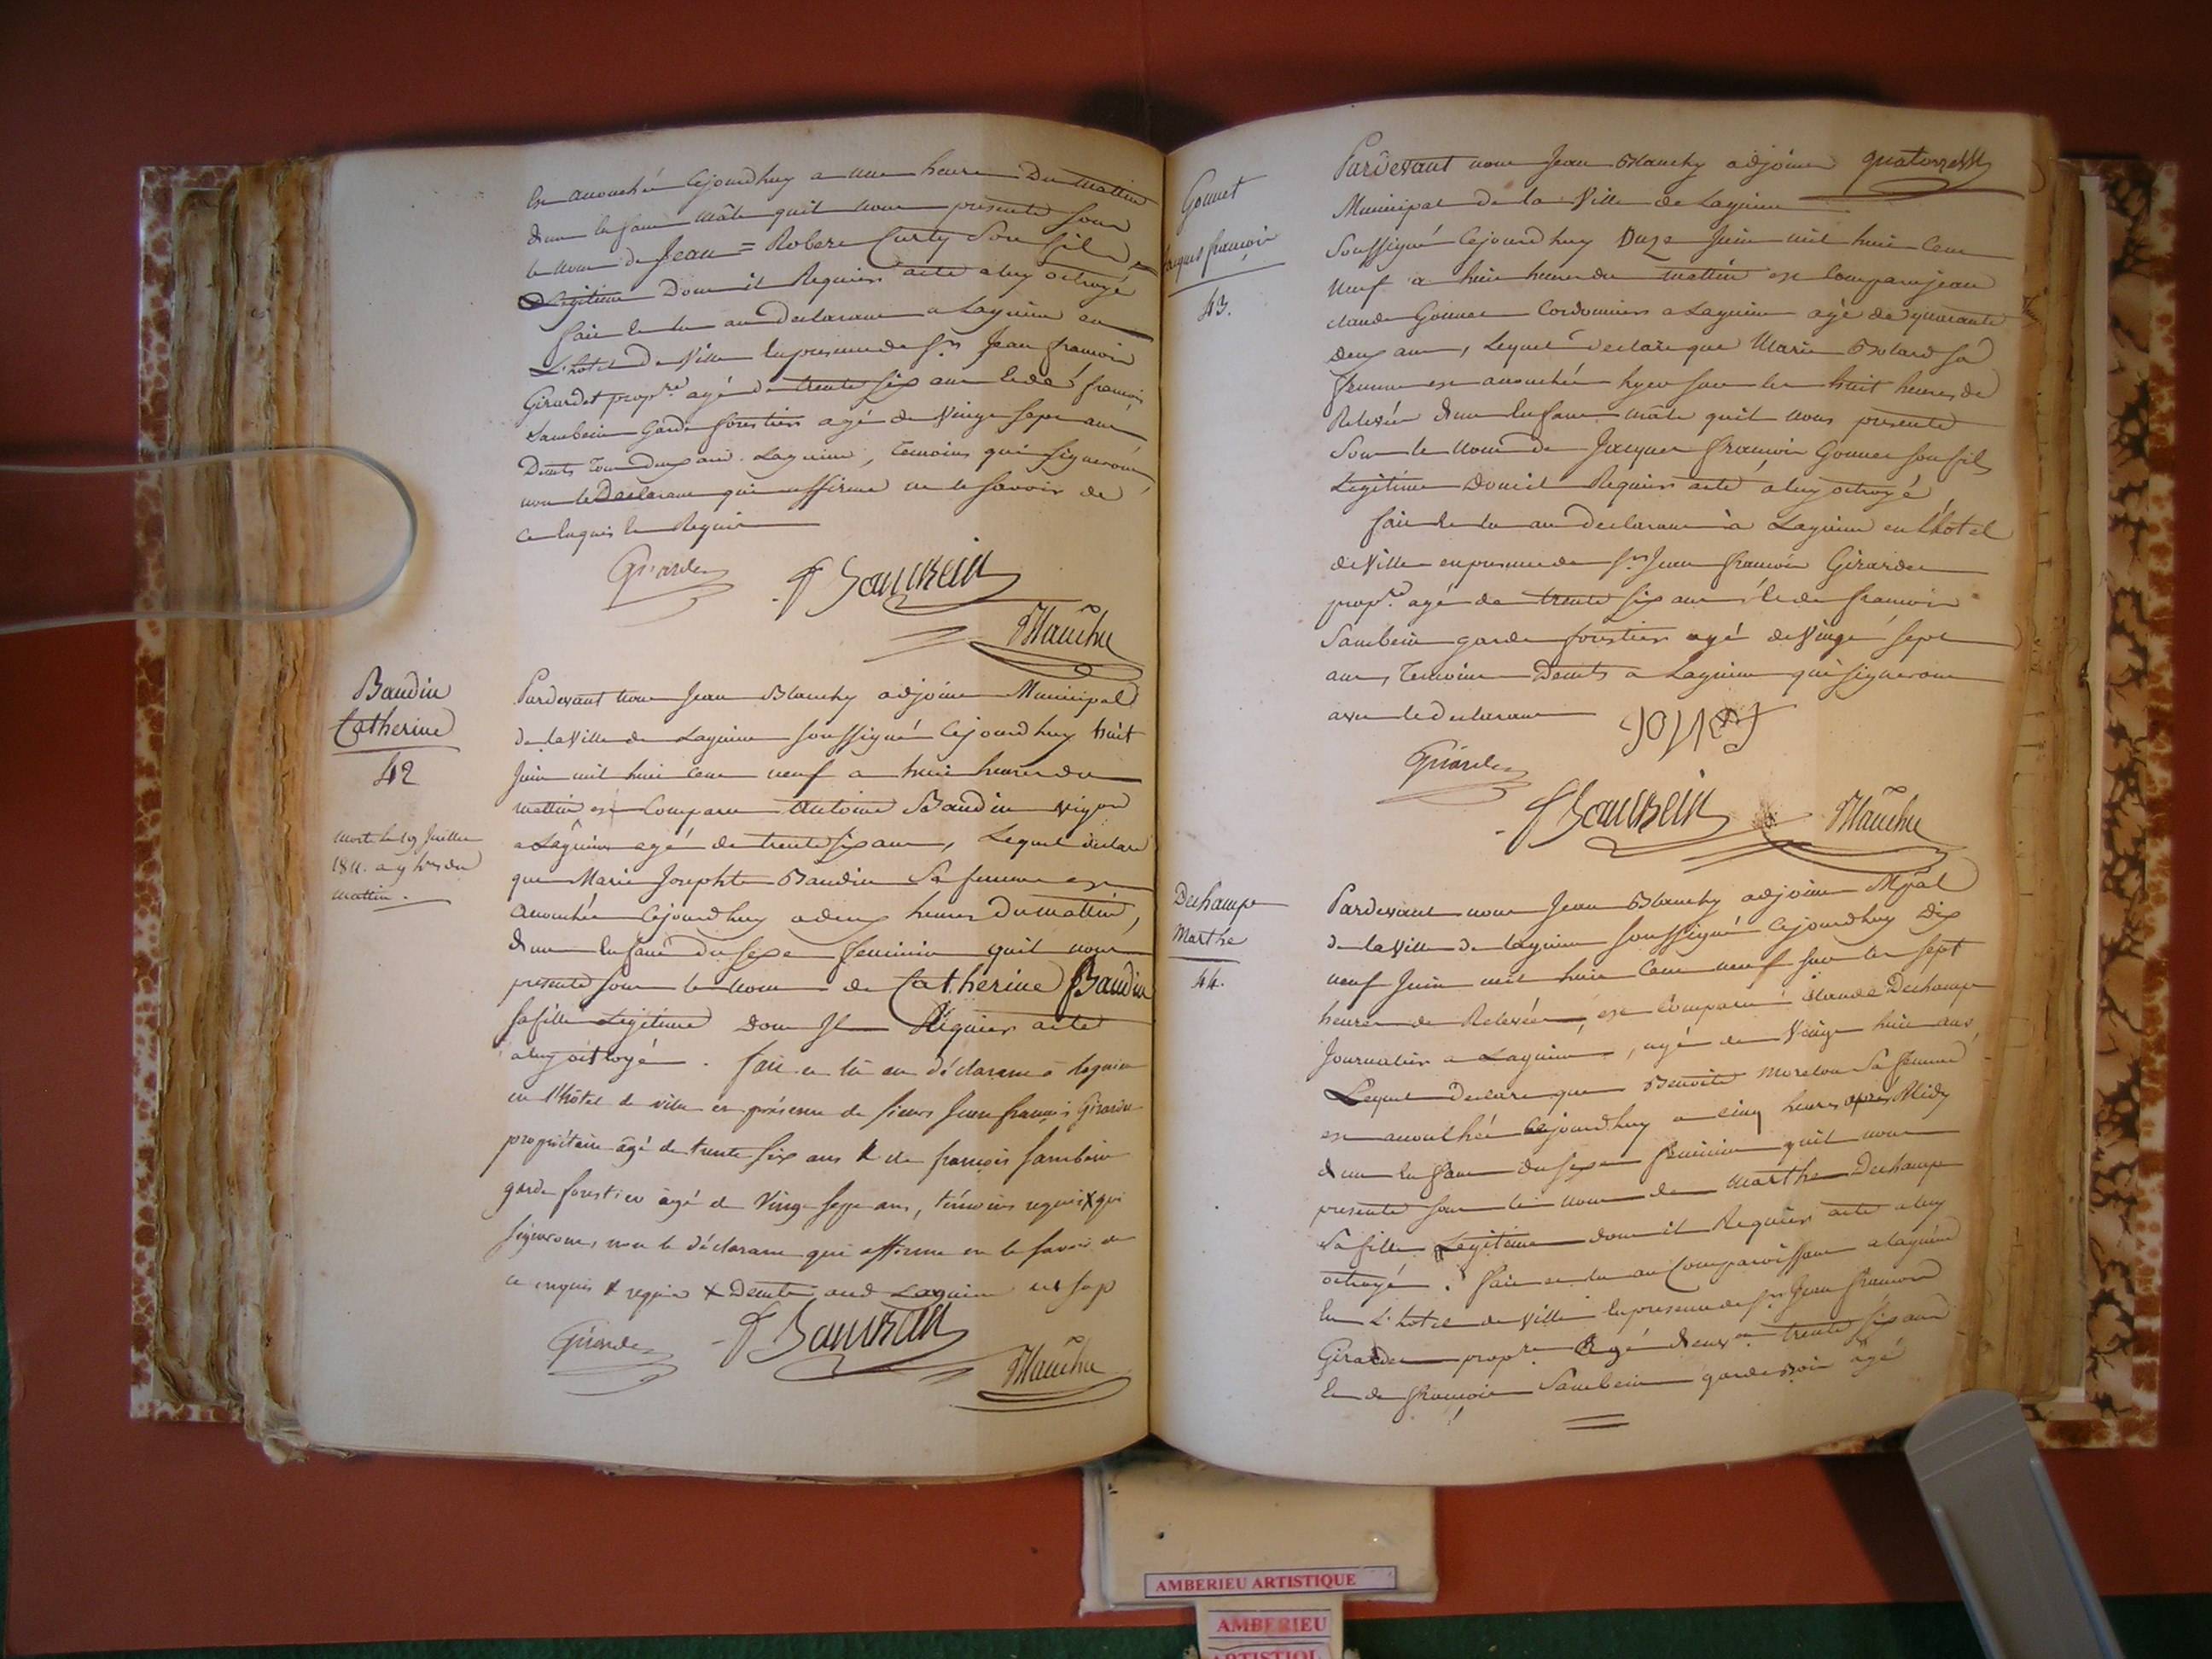 est accouchée cejourdhuy a une heure du mattin
d'un enfant mâle quil nous presente sous
le nom de Jean = Robert Curty Son fils
Legitime Dont il Requiert acte a luy octroyé
fait et lu au Declarant a Lagnieu en
L'hotel de Ville en presence de Srs Jean françois
Girardet propre agé de trente six ans et de françois
Sambein Garde forestier agé de Vingt sept ans
Demts tous deux aud. Lagnieu, temoins qui signeront
non le Declarant qui affirme ne le savoir de
ce enquis et Requis
Girardet
f Sambein
Blanchy
Baudin
Catherine
42
morte le 19 Juillet
1811. a 9 hres du
mattin.
Pardevant nous Jean Blanchy adjoint Municipal
de la Ville de Lagnieu soussigné cejourdhuy huit
Juin mil huit cent neuf a huit heures du
mattin est Comparu Antoine Baudin vigon
a Lagnieu agé de trente six ans, Lequel declare
que Marie Josephte Baudin Sa femme est
accouchée cejourdhuy a deux heures du mattin,
d'un enfant du sexe feminin quil nous
presente sous le nom de Catherine Baudin
sa fille Legitime dont Il Requier acte
a luy octroyé. fait et lû au déclarant à Lagnieu
en l'hôtel de ville en présence de sieurs Jean françois Girardet
propriétaire âgé de trente six ans & de françois Sambein
garde forestier âgé de vingt sept ans, témoins requis X qui
signeront, non le déclarant qui affirme ne le savoir de
ce enquis & requis X Demts aud Lagnieu
Girardet
f Sambein
Blanchy
Gonnet
Jacques françois
43.
Pardevant nous Jean Blanchy adjoint quatorze
Municipal de la Ville de Lagnieu
Soussigné Cejourdhuy Onze Juin mil huit Cent
neuf a huit heures du mattin est Comparu jean
claude Gonnet Cordonnier a Lagnieu agé de quarante
deux ans, Lequel declare que Marie Bolard sa
femme est accouchée hyer sur les huit heures de
Relevée d'un enfant mâle quil nous presente
Sous le nom de Jacques François Gonnet son fils
Legitime Dont il Requier acte a luy octroyé
fait et lu au declarant à Lagnieu en l'hotel
de Ville en presence de Srs Jean François Girardet
propre agé de trente six ans et de françois
Sambein garde forestier agé de Vingt sept
ans, Temoins Demts a Lagnieu qui signeront
avec le declarant
Girardet
f Sambein
Blanchy
Dechampe
Marthe
44.
Pardevant nous Jean Blanchy adjoint Mpal
de la Ville de Lagnieu soussigné cejourdhuy Dix
neuf Juin mil huit Cent neuf sur les sept
heures de Relevée, est Comparu Claude Dechampe
Journalier a Lagnieu, agé de Vingt huit ans,
Lequel Declare que Benoite Morelon Sa femme
est accouchée cejourdhuy a cinq heures après Midy
d'un enfant du sexe feminin quil nous
presente sous le nom de Marthe Dechampe
Sa fille Legitime dont il Requier acte a luy
octroyé. fait et lu au Comparoissant a lagnieu
En L'hotel de Ville En presence de Srs Jean Francois
Girardet propre Agé d'env.on trente six ans
Et de François Sambein garde Bois agé
AMBERIEU ARTISTIQUE
AMBERIEU
ARTISTIQ